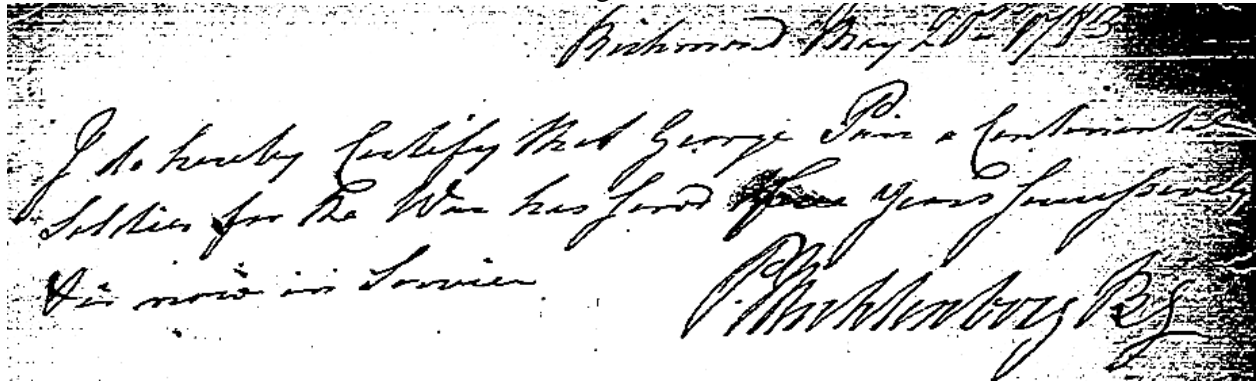 Richmond May 20th 1783
I do hereby Certify that George Pim a Continental
Soldier for the War has served three Years Successively
& is now in Service
P. Muhlenberg BG